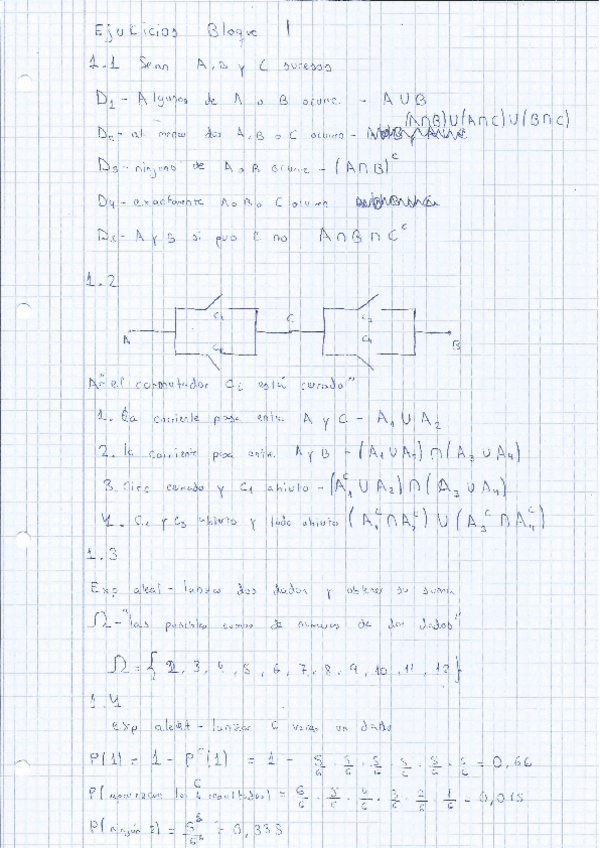 Ejercicios Bloque 1
1.1 Sean A, B y C sucesos
D₁ - Algunos de A o B ocurre - A∪B
(A∩B)∪(A∩C)∪(B∩C)
D₂ - al menos dos A, B o C ocurren -
D₃ - ninguno de A o B ocurre - (A∩B)ᶜ
D₄ - exactamente A o B o C ocurren
D₅ - A y B si pero C no A∩B∩Cᶜ
1.2
C₁ C₃
A C B
C₂ C₄
A "el conmutador Cᵢ está cerrado"
1. La corriente pasa entre A y C - A₁∪A₂
2. la corriente pasa entre A y B - (A₁∪A₂)∩(A₃∪A₄)
3. cerrado y C₁ abierto - (A₁ᶜ∪A₂)∩(A₃∪A₄)
4. C₁ y C₃ abierto y todo abierto (A₁ᶜ∩A₂ᶜ)∪(A₃ᶜ∩A₄ᶜ)
1.3
Exp aleat - lanzar dos dados y obtener su suma
Ω - "las posibles sumas de números de dos dados"
Ω = {2, 3, 4, 5, 6, 7, 8, 9, 10, 11, 12}
1.4
Exp aleat - lanzar 6 veces un dado
P(1) = 1 - Pᶜ(1) = 1 - 5/6 · 5/6 · 5/6 · 5/6 · 5/6 · 5/6 = 0,66
P(aparezcan los 6 resultados) = 6/6 · 5/6 · 4/6 · 3/6 · 2/6 · 1/6 = 0,015
P(ningún 2) = 5⁶/6⁶ = 0,335